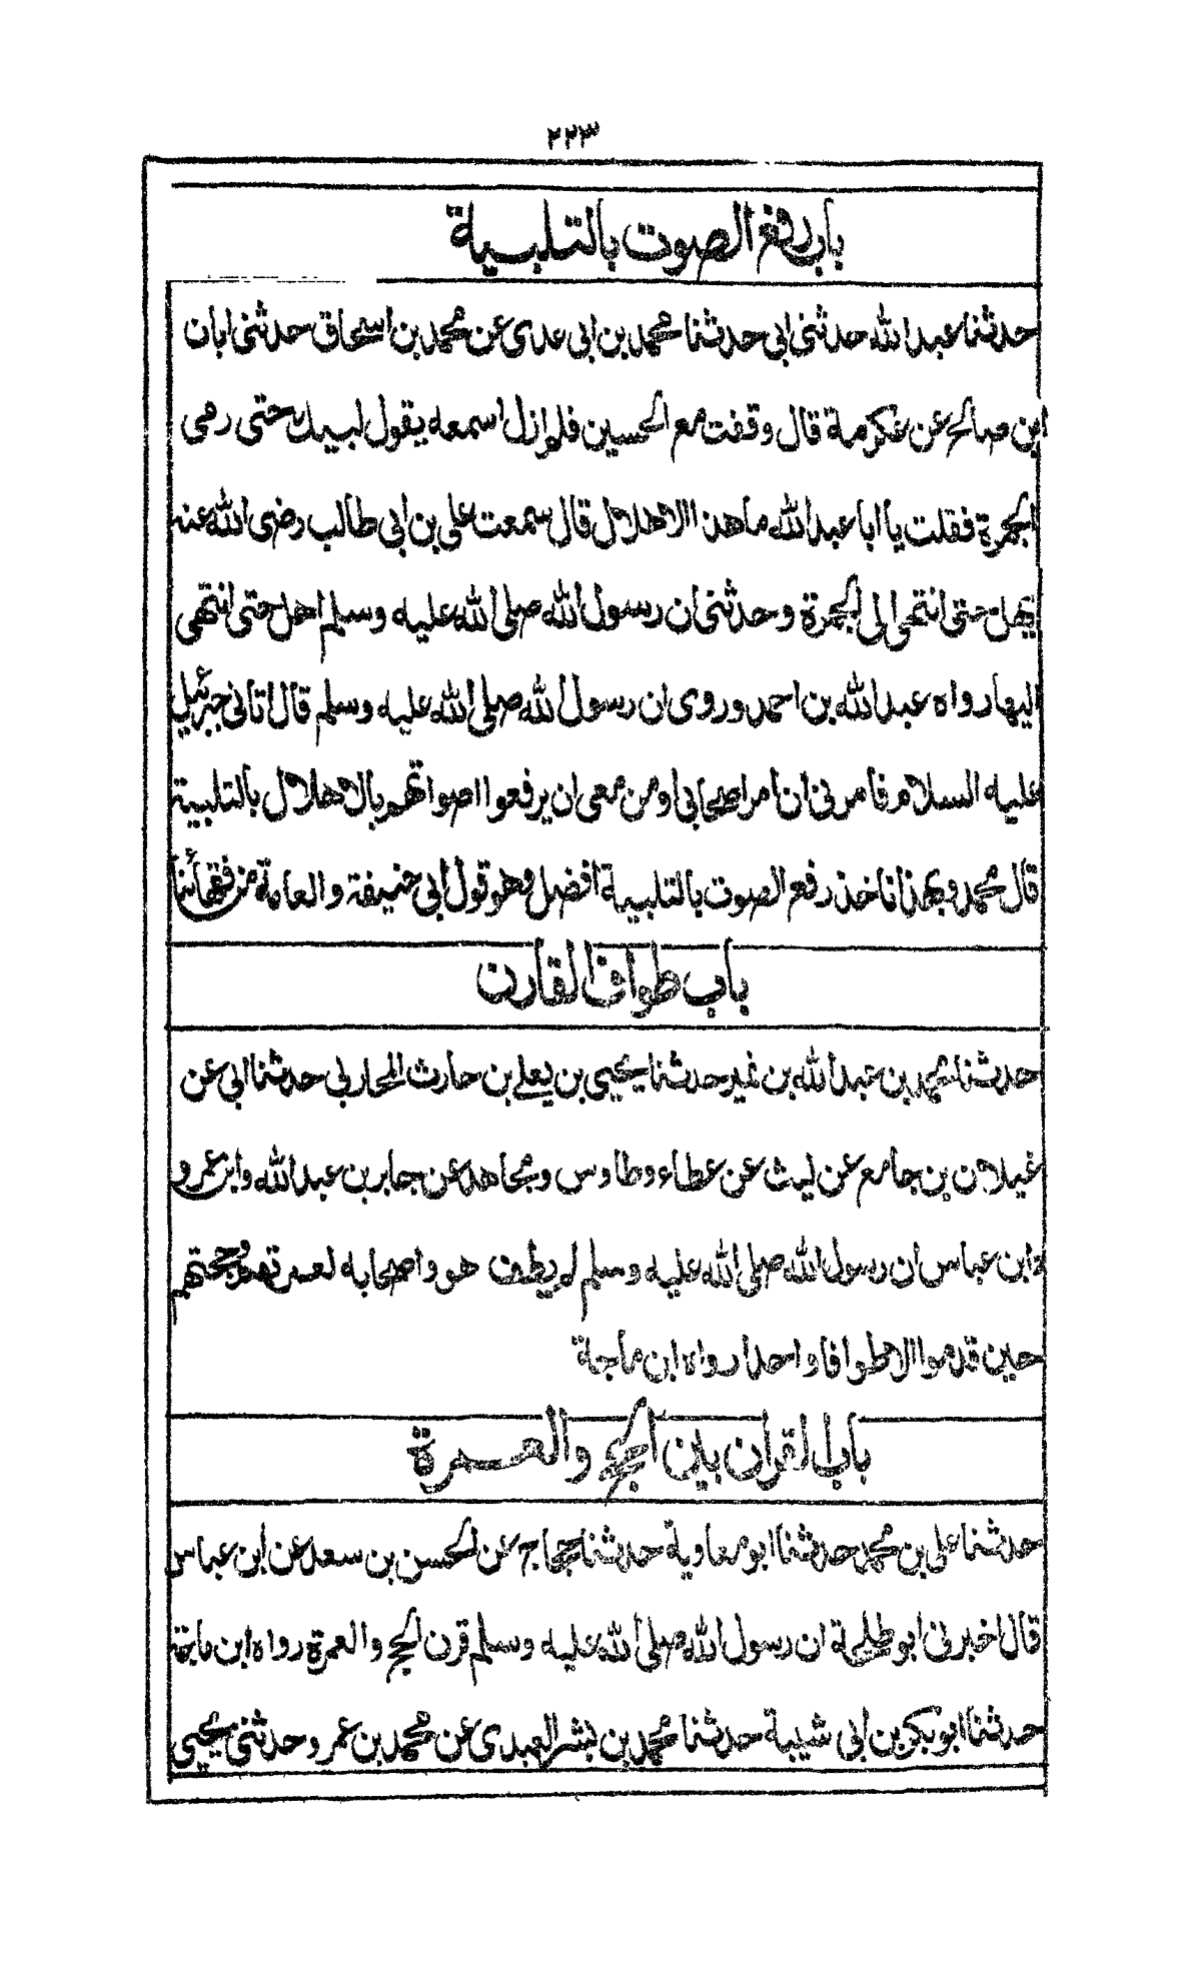 ٢٢٣
باب رفع الصوت بالتلبية
حدثنا عبد الله حدثنى ابى حدثنا محمد بن ابى عدى عن محمد بن اسحاق حدثنى ابان
ابن صالح عن عكرمة قال وقفت مع الحسين فلم ازل اسمعه يقول لبيك حتى رمى
الجمرة فقلت يا ابا عبد الله ما هذا الاهلال قال سمعت على بن ابى طالب رضى الله عنه
يهل حتى انتهى الى الجمرة وحدثنى ان رسول الله صلى الله عليه وسلم اهل حتى انتهى
اليها رواه عبد الله بن احمد وروى ان رسول الله صلى الله عليه وسلم قال اتانى جبرئيل
عليه السلام فامرنى ان امر اصحابى او من معى ان يرفعوا اصواتهم بالاهلال بالتلبية
قال محمد وبهذا ناخذ رفع الصوت بالتلبية افضل وهو قول ابى حنيفة والعامة من فقهائنا
باب طواف القارن
حدثنا محمد بن عبد الله بن نمير حدثنا يحيى بن يعلے بن حارث المحاربى حدثنا ابى عن
غيلان بن جامع عن ليث عن عطاء وطاوس ومجاهد عن جابر بن عبد الله وابن عمر و
ابن عباس ان رسول الله صلى الله عليه وسلم لم يطف هو واصحابه لعمرتهم وحجتهم
حين قدموا الا طوافا واحدا رواه ابن ماجة
باب القران بين الحج والعمرة
حدثنا على بن محمد حدثنا ابو معاوية حدثنا حجاج عن الحسن بن سعد عن ابن عباس
قال اخبرنى ابو طلحة ان رسول الله صلى الله عليه وسلم قرن الحج والعمرة رواه ابن ماجة
حدثنا ابو بكر بن ابى شيبة حدثنا محمد بن بشر العبدى عن محمد بن عمر وحدثنى يحيى